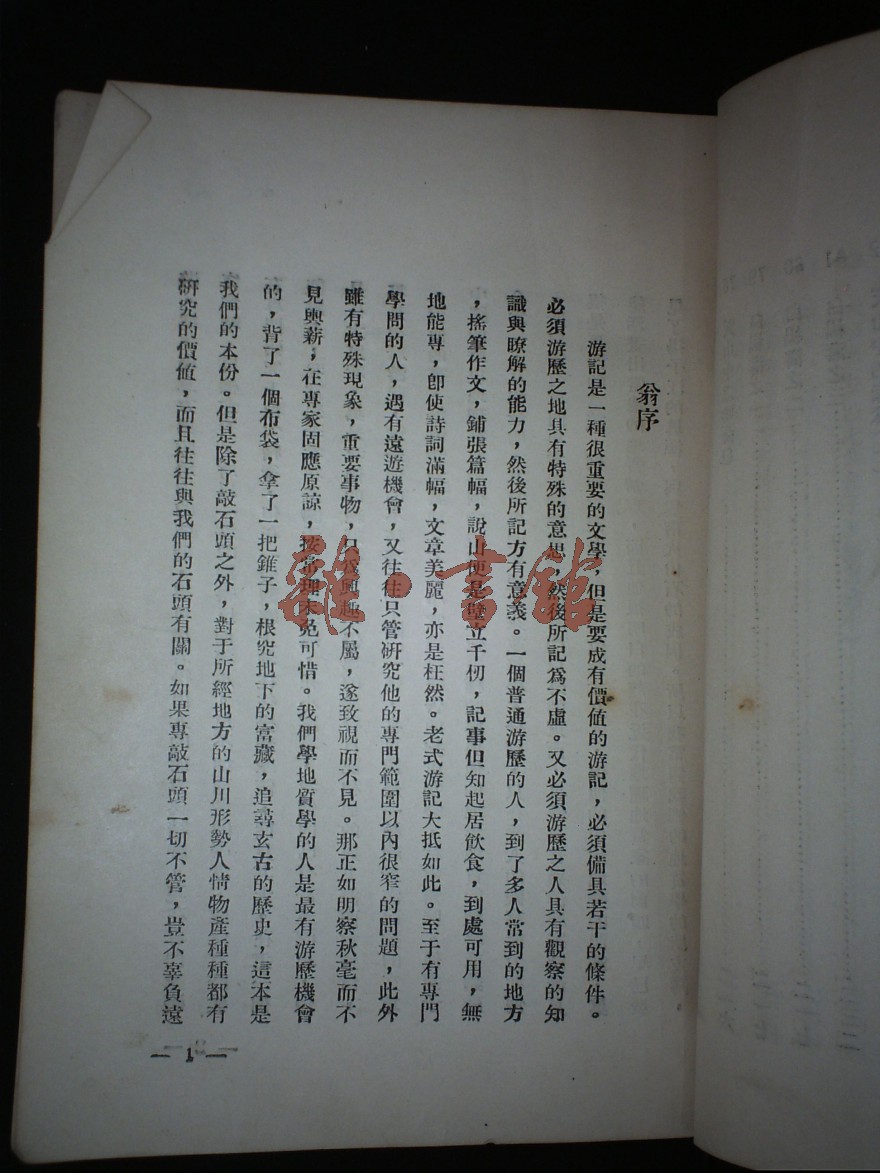 翁序
游記是一種很重要的文學，但是要成有價值的游記，必須備具若干的條件。
必須游歷之地具有特殊的意思，然後所記爲不虛。又必須游歷之人具有觀察的知
識與瞭解的能力，然後所記方有意義。一個普通游歷的人，到了多人常到的地方
，搖筆作文，鋪張篇幅，說山便是壁立千仞，記事但知起居飲食，到處可用，無
地能專，卽使詩詞滿幅，文章美麗，亦是枉然。老式游記大抵如此。至于有專門
學問的人，遇有遠遊機會，又往往只管研究他的專門範圍以內很窄的問題，此外
雖有特殊現象，重要事物，只爲興趣不屬，遂致視而不見。那正如明察秋毫而不
見輿薪，在專家固應原諒，按常理未免可惜。我們學地質學的人是最有游歷機會
的，背了一個布袋，拿了一把錐子，根究地下的富藏，追尋玄古的歷史，這本是
我們的本份。但是除了敲石頭之外，對于所經地方的山川形勢人情物產種種都有
研究的價值，而且往往與我們的石頭有關。如果專敲石頭一切不管，豈不辜負遠
— 1 —
雜·書館